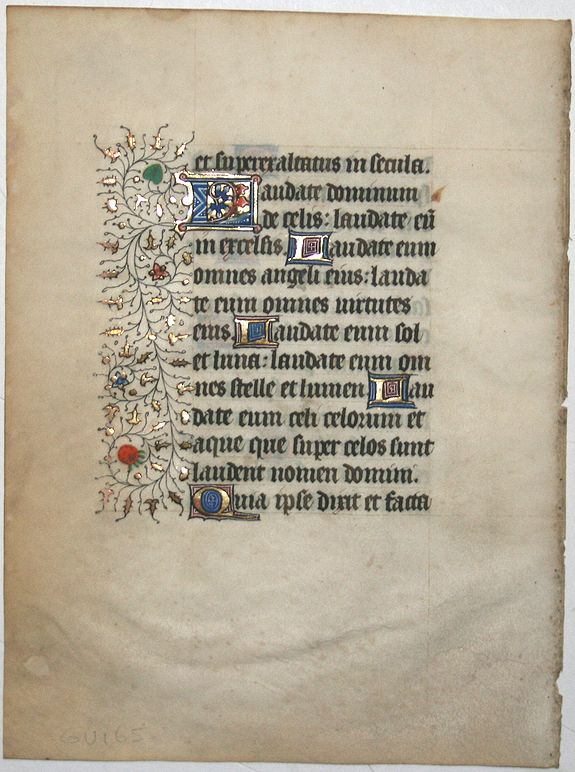 et superexaltatus in secula.
Laudate dominum
de celis: laudate eū
in excelsis. Laudate eum
omnes angeli eius: lauda
te eum omnes uirtutes
eius. Laudate eum sol
et luna: laudate eum om
nes stelle et lumen. Lau
date eum celi celorum et
aque que super celos sunt
laudent nomen domini.
Quia ipse dixit et facta
GU165